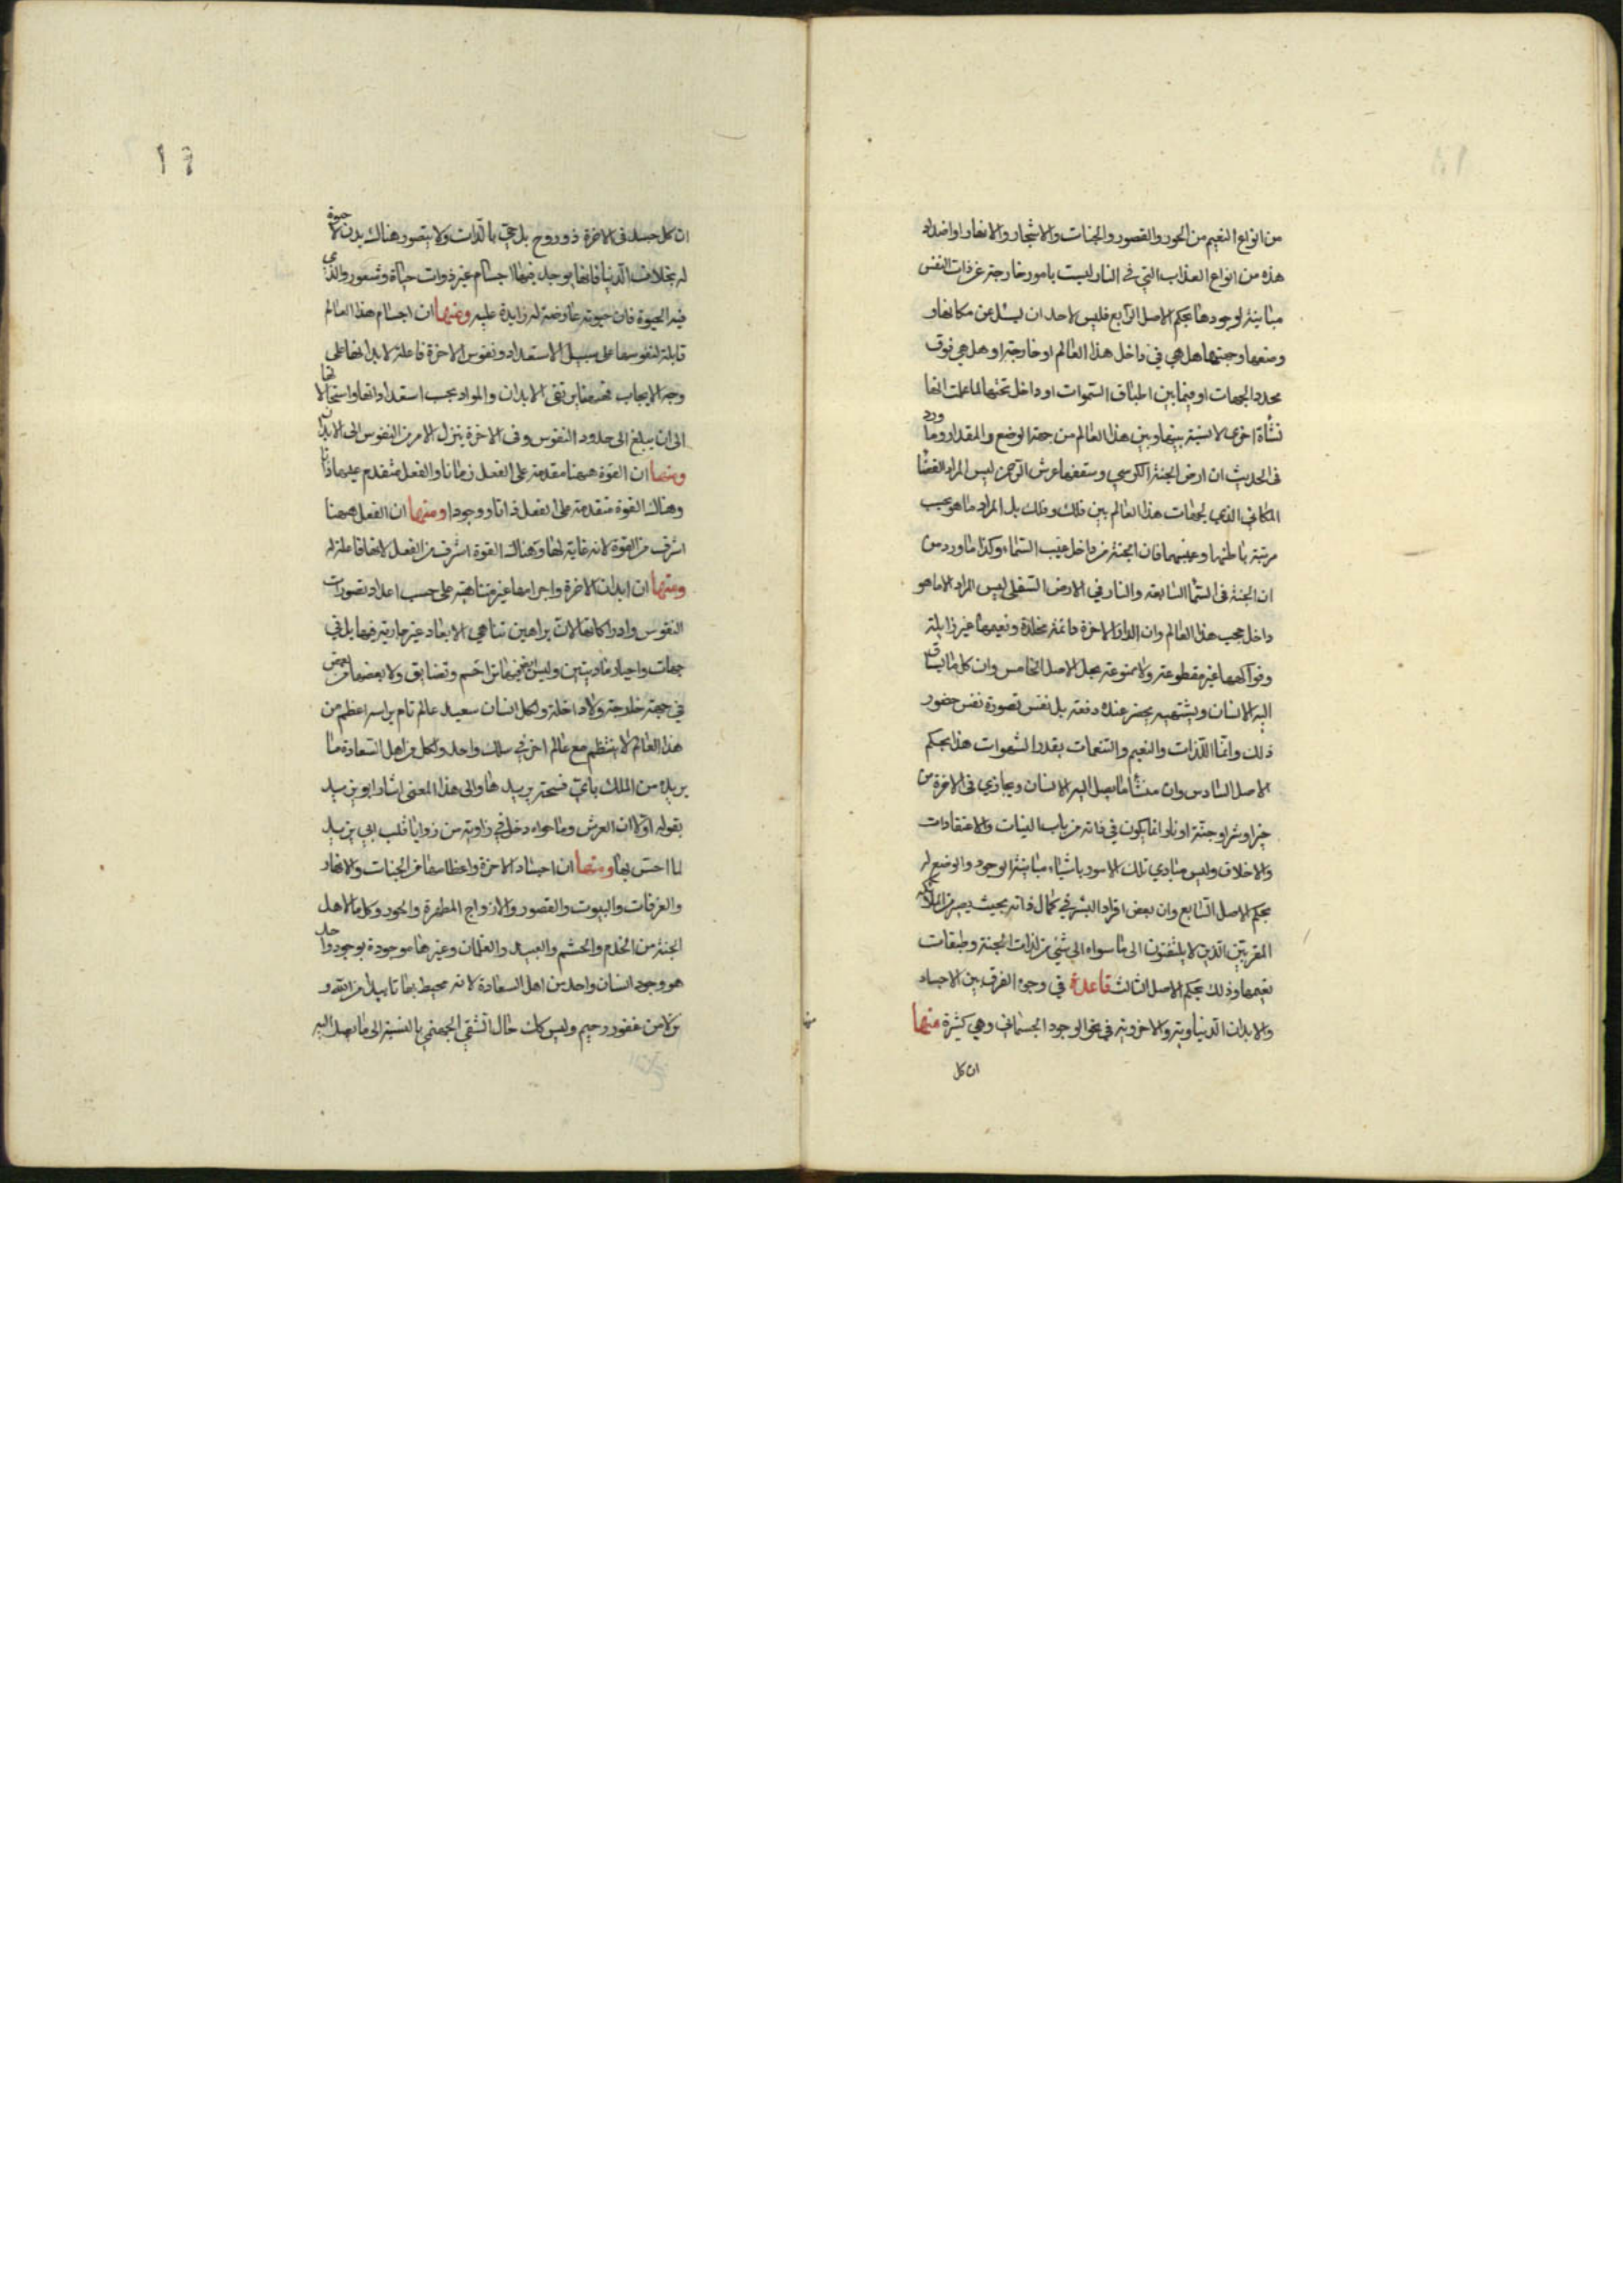 من انواع النعيم من الحور والقصور والجنات والاشجار والانهار او اضداد
هذه من انواع العذاب التي في النار ليست بامور خارجة عن ذات النفس
مباينة لوجودها بحكم الاصل الرابع فليس لاحد ان يسئل عن مكانها و
وضعها وجهتها هل هي في داخل هذا العالم او خارجة او هل هي فوق
محدد الجهات او فيما بين اطباق السموات او داخل تحتها لما علمت انها
نشأة اخرى لا نسبة بينها وبين هذا العالم من جهة الوضع والمقدار وما ورد
في الحديث ان ارض الجنة الكرسي وسقفها عرش الرحمن ليس المراد الفضا
المكاني الذي لجهات هذا العالم بين فلك وفلك بل المراد ما هو بحسب
مرتبة باطنها وغيبهما فان الجنة من داخل غيب السماء وكذا ما ورد من
ان الجنة في السما السابعة والنار في الارض السفلى ليس المراد الا ما هو
داخل حجب هذا العالم وان الدار الاخرة دائمة مخلدة ونعيمها غير زايلة
وفواكهها غير مقطوعة ولا ممنوعة بحل الاصل الخامس وان كل ما يشتاق
اليه الانسان ويشتهيه يحضر عنده دفعة بل نفس تصوره نفس حضور
ذلك وانما اللذات والنعيم والتنعمات بقدر الشهوات هذا بحكم
الاصل السادس وان منشأ ما يصل اليه الانسان ويجازي في الاخرة من
خير او شر او جنة او نار انما يكون في ذاته من باب النيات والاعتقادات
والاخلاق وليس مبادي تلك الامور باشياء مباينة الوجود والوضع له
بحكم الاصل السابع وان بعض افراد البشر في كمال ذاته بحيث يصير من الملائكة
المقربين الذين لا يلتفتون الى ما سواه الى شئ من لذات الجنة وطبقات
نعيمها وذلك بحكم الاصل الثالث قاعدة في وجوه الفرق بين الاجساد
والابدان الدنياوية والاخروية في نحو الوجود الجسماني وهي كثيرة منها
ان كل
ان كل جسد في الاخرة ذو روح بل حي بالذات ولا يتصور هناك بدن لا حيوة
له بخلاف الدنيا فانها يوجد فيها اجسام غير ذوات حياة وشعور والذي
فيه الحيوة فان حيوته عارضة له زايدة عليه ومنها ان اجسام هذا العالم
قابلة لنفوسها على سبيل الاستعداد ونفوس الاخرة فاعلة لابدانها على
وجه الايجاب فههنا يرتقى الابدان والمواد بحسب استعداداتها واستحالاتها
الى ان يبلغ الى حدود النفوس وفي الاخرة ينزل الامر من النفوس الى الابدان
ومنها ان القوة ههنا مقدمة على الفعل زمانا والفعل متقدم عليها ذاتا
وهناك القوة متقدمة على الفعل ذاتا ووجودا ومنها ان الفعل ههنا
اشرف من القوة لانه غاية لها وهناك القوة اشرف من الفعل لانها فاعلة له
ومنها ان ابدان الاخرة واجرامها غير متناهية على حسب اعداد تصورات
النفوس وادراكاتها لان براهين تناهي الابعاد غير جارية فيها بل في
جهات واحياز ماديتين وليس فيها تزاحم وتضايق ولا بعضها من بعض
في جهة خارجة ولا داخلة ولكل انسان سعيد عالم تام براسه اعظم من
هذا العالم لا ينتظم مع عالم اخر في سلك واحد ولكل من اهل السعادة ما
يريده من الملك باي فسحة يريدها والى هذا المعنى اشار ابو يزيد
بقوله لو ان العرش وما حواه دخل في زاوية من زوايا قلب ابي يزيد
لما احس بها ومنها ان اجساد الاخرة واعظامها من الجنات والانهار
والغرفات والبيوت والقصور والازواج المطهرة والحور وكل ما لاهل
الجنة من الخدم والحشم والعبيد والغلمان وغيرها موجودة بوجود واحد
هو وجود انسان واحد من اهل السعادة لانه محيط بها تاييدا من الله و
نزلا من غفور رحيم وليس كان حال الشقي الجهنمي بالنسبة الى ما يصل اليه